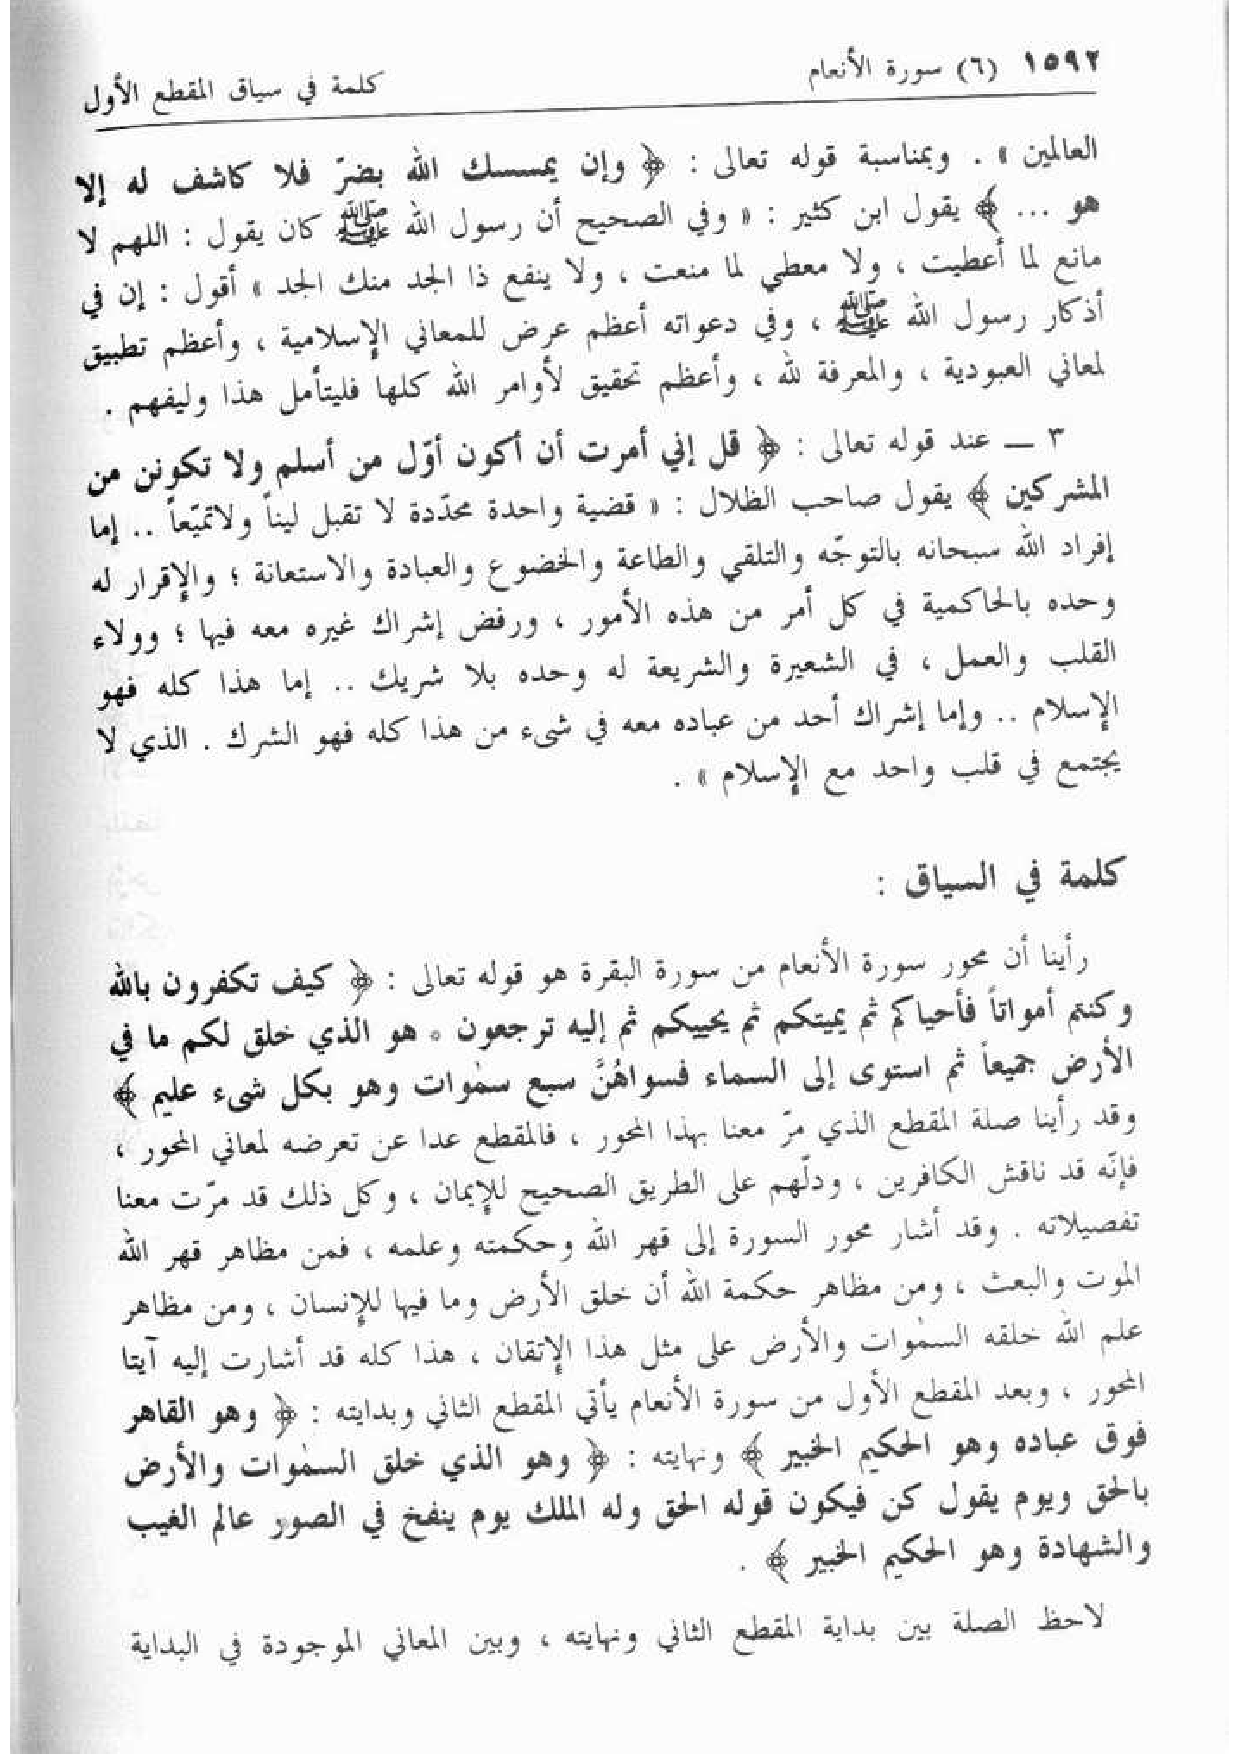 ١٥٩٢ (٦) سورة الأنعام كلمة في سياق المقطع الأول
العالمين » . وبمناسبة قوله تعالى : ﴿ وإن يمسسك الله بضرّ فلا كاشف له إلا
هو ... ﴾ يقول ابن كثير : « وفي الصحيح أن رسول الله ﷺ كان يقول : اللهم لا
مانع لما أعطيت ، ولا معطي لما منعت ، ولا ينفع ذا الجد منك الجد » أقول : إن في
أذكار رسول الله ﷺ ، وفي دعواته أعظم عرض للمعاني الإسلامية ، وأعظم تطبيق
لمعاني العبودية ، والمعرفة لله ، وأعظم تحقيق لأوامر الله كلها فليتأمل هذا وليفهم .
٣ ــ عند قوله تعالى : ﴿ قل إني أمرت أن أكون أوّل من أسلم ولا تكونن من
المشركين ﴾ يقول صاحب الظلال : « قضية واحدة محدّدة لا تقبل ليناً ولا تميّعاً .. إما
إفراد الله سبحانه بالتوجّه والتلقي والطاعة والخضوع والعبادة والاستعانة ؛ والإقرار له
وحده بالحاكمية في كل أمر من هذه الأمور ، ورفض إشراك غيره معه فيها ؛ وولاء
القلب والعمل ، في الشعيرة والشريعة له وحده بلا شريك .. إما هذا كله فهو
الإسلام .. وإما إشراك أحد من عباده معه في شىء من هذا كله فهو الشرك . الذي لا
يجتمع في قلب واحد مع الإسلام » .
كلمة في السياق :
رأينا أن محور سورة الأنعام من سورة البقرة هو قوله تعالى : ﴿ كيف تكفرون بالله
وكنتم أمواتاً فأحياكم ثم يميتكم ثم يحييكم ثم إليه ترجعون * هو الذي خلق لكم ما في
الأرض جميعاً ثم استوى إلى السماء فسواهُنَّ سبع سمٰوات وهو بكل شىء عليم ﴾
وقد رأينا صلة المقطع الذي مرّ معنا بهذا المحور ، فالمقطع عدا عن تعرضه لمعاني المحور ،
فإنّه قد ناقش الكافرين ، ودلّهم على الطريق الصحيح للإيمان ، وكل ذلك قد مرّت معنا
تفصيلاته . وقد أشار محور السورة إلى قهر الله وحكمته وعلمه ، فمن مظاهر قهر الله
الموت والبعث ، ومن مظاهر حكمة الله أن خلق الأرض وما فيها للإنسان ، ومن مظاهر
علم الله خلقه السمٰوات والأرض على مثل هذا الإتقان ، هذا كله قد أشارت إليه آيتا
المحور ، وبعد المقطع الأول من سورة الأنعام يأتي المقطع الثاني وبدايته : ﴿ وهو القاهر
فوق عباده وهو الحكيم الخبير ﴾ ونهايته : ﴿ وهو الذي خلق السمٰوات والأرض
بالحق ويوم يقول كن فيكون قوله الحق وله الملك يوم ينفخ في الصور عالم الغيب
والشهادة وهو الحكيم الخبير ﴾ .
لاحظ الصلة بين بداية المقطع الثاني ونهايته ، وبين المعاني الموجودة في البداية